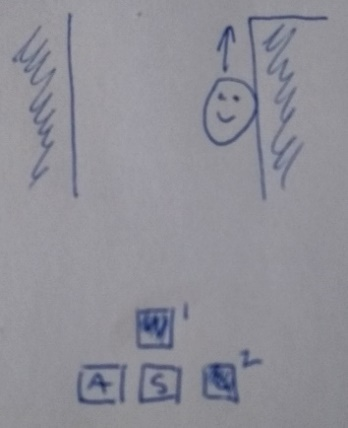 W 1
A S 2